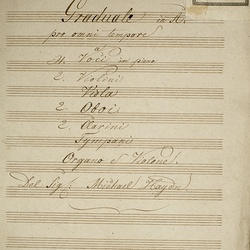 Graduale in A.
pro omni tempore
a
4. Voci in pieno
2. Violini
Viola
2 Oboi
2. Clarini
Tympani
Organo e Violone.
Del Sig: Michael Haydn.